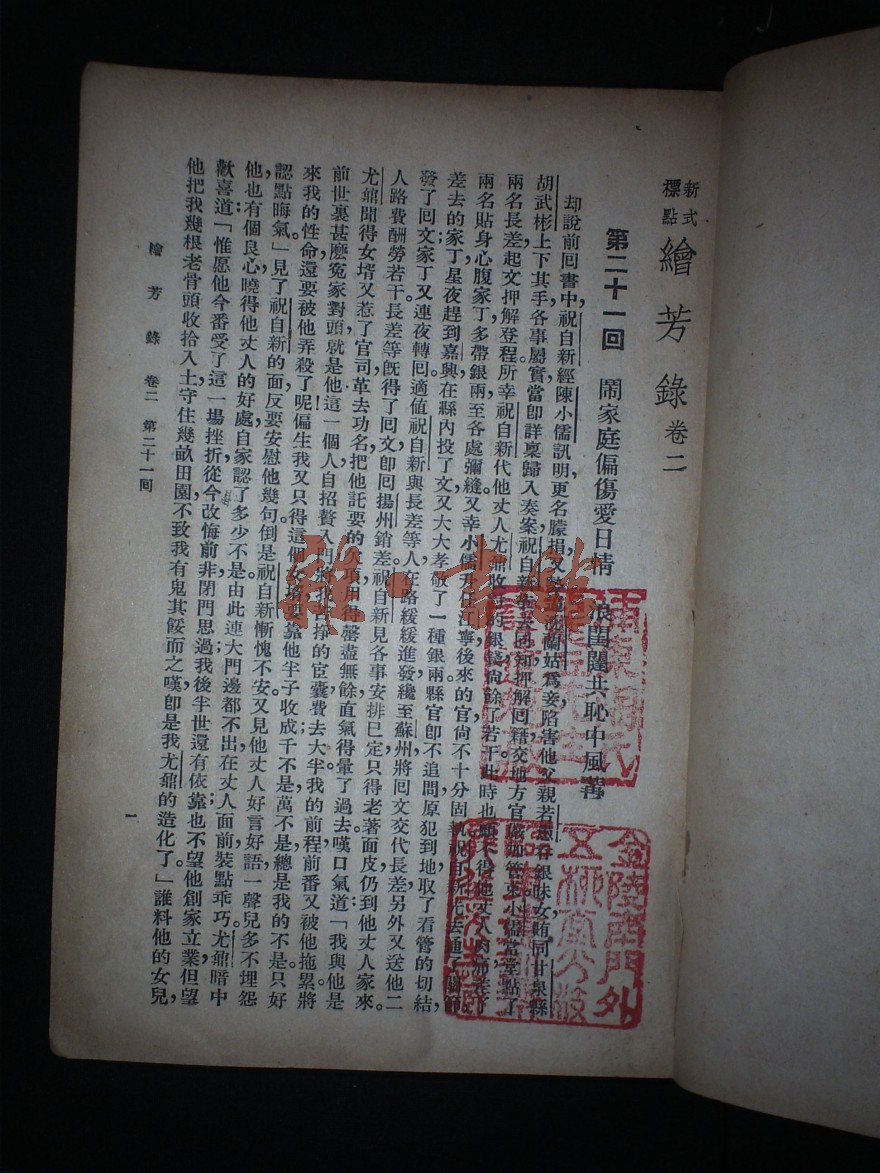 新式標點 繪芳錄 卷二
第二十一回 鬧家庭偏傷愛日情 浪閨闥共恥中風冓
却說前回書中，祝自新經陳小儒訊明更名朦捐，又
胡武彬上下其手，各事屬實，當卽詳稟歸入奏案，祝自新
兩名長差，起文押解登程。所幸祝自新代他丈人尤鼐收
兩名貼身心腹家丁，多帶銀兩，至各處彌縫。又幸小儒
差去的家丁，星夜趕到嘉興，在縣內投了文，又大大孝敬了一種銀兩，縣官卽不追問原犯到地，取了看管的切結，
發了回文。家丁又連夜轉回，適值祝自新與長差等人，在路緩緩進發，纔至蘇州。將回文交代長差，另外又送他二
人路費酬勞若干。長差等旣得了回文，卽回揚州銷差。祝自新見各事安排已定，只得老著面皮，仍到他丈人家來。
尤鼐聞得女壻又惹了官司，革去功名，把他託要的
前世裏甚麽冤家對頭，就是他這一個人，自招贅入門，將我
來我的性命還要被他弄殺了呢！偏生我又只得這個女壻，要靠他半子收成，千不是萬不是，總是我的不是，只好
認點晦氣」見了祝自新的面，反要安慰他幾句，倒是祝自新慚愧不安。又見他丈人好言好語，一聲兒多不埋怨
他，也有個良心，曉得他丈人的好處，自家認了多少不是。由此連大門邊都不出，在丈人面前裝點乖巧。尤鼐暗中
歡喜道：「惟愿他今番受了這一場挫折，從今改悔前非，閉門思過，我後半世還有依靠；也不望他創家立業，但望
他把我幾根老骨頭收拾入土，守住幾畝田園，不致我有鬼其餒而之嘆，卽是我尤鼐的造化了。」誰料他的女兒，
繪芳錄 卷二 第二十一回
一
金陵南門外
雅·書館